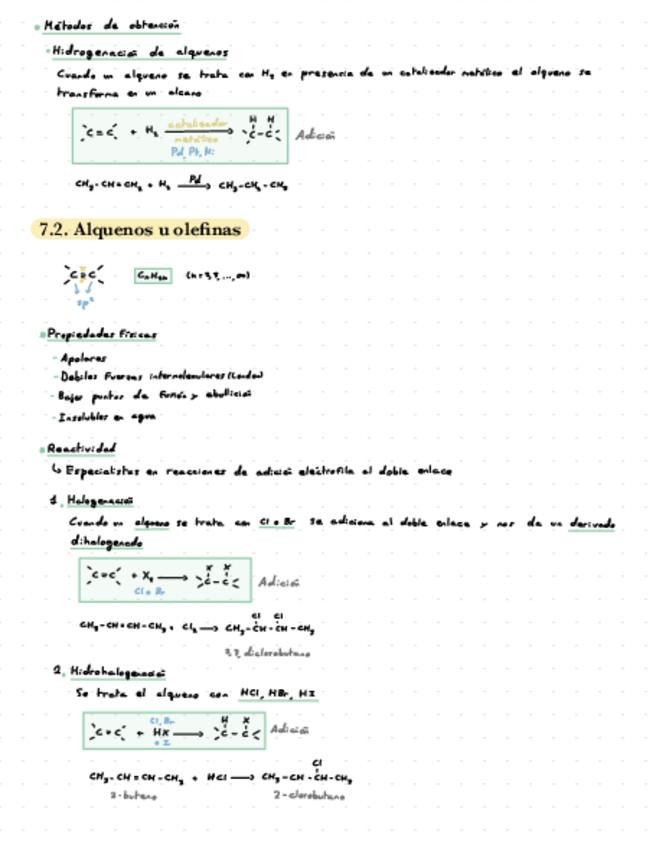 Métodos de obtención
Hidrogenación de alquenos
Cuando un alqueno se trata con H₂ en presencia de un catalizador metálico el alqueno se
transforma en un alcano
C=C + H₂ catalizador metálico Pd, Pt, Ni → H H C-C Adición
CH₃-CH=CH₂ + H₂ Pd → CH₃-CH₂-CH₃
7.2. Alquenos u olefinas
C=C CnH2n
sp²
Propiedades Físicas
- Apolares
- Débiles Fuerzas intermoleculares (London)
- Bajos puntos de fusión y ebullición
- Insolubles en agua
Reactividad
↳ Especialistas en reacciones de adición electrófila al doble enlace
1. Halogenación
Cuando un alqueno se trata con Cl o Br se adiciona al doble enlace y nos da un derivado
dihalogenado
C=C + X₂ → X X C-C Adición
Cl o Br
Cl Cl
CH₃-CH=CH-CH₃ + Cl₂ → CH₃-CH-CH-CH₃
diclorobutano
2. Hidrohalogenación
Se trata el alqueno con HCl, HBr, HI
Cl, Br
C=C + HX → H X C-C Adición
o I
Cl
CH₃-CH=CH-CH₃ + HCl → CH₃-CH-CH-CH₃
2-buteno 2-clorobutano